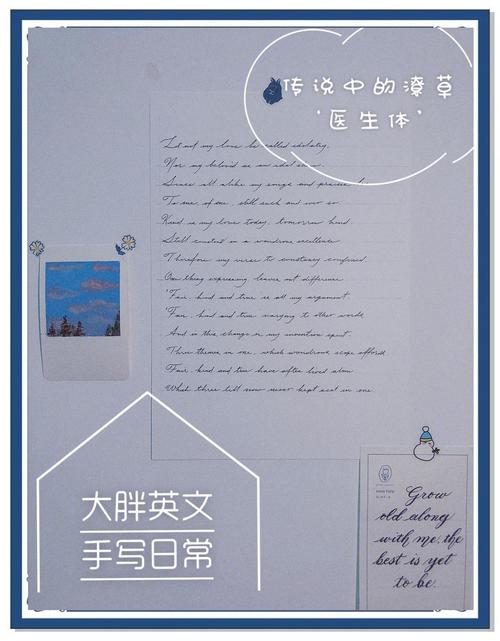 传说中的潦草
‘医生体’
Let not my love be called idolatry,
Nor my beloved as an idol show,
Since all alike my songs and praises be
To one, of one, still such and ever so.
Kind is my love today, tomorrow kind,
Still constant in a wondrous excellence;
Therefore my verse to constancy confined,
One thing expressing, leaves out difference.
'Fair, kind and true' is all my argument,
'Fair, kind and true' varying to other words,
And in this change is my invention spent,
Three themes in one, which wondrous scope affords.
Fair, kind and true have often lived alone
Which three till now never kept seat in one.
Grow
old along
with me, the
best is yet
to be.
大胖英文
手写日常